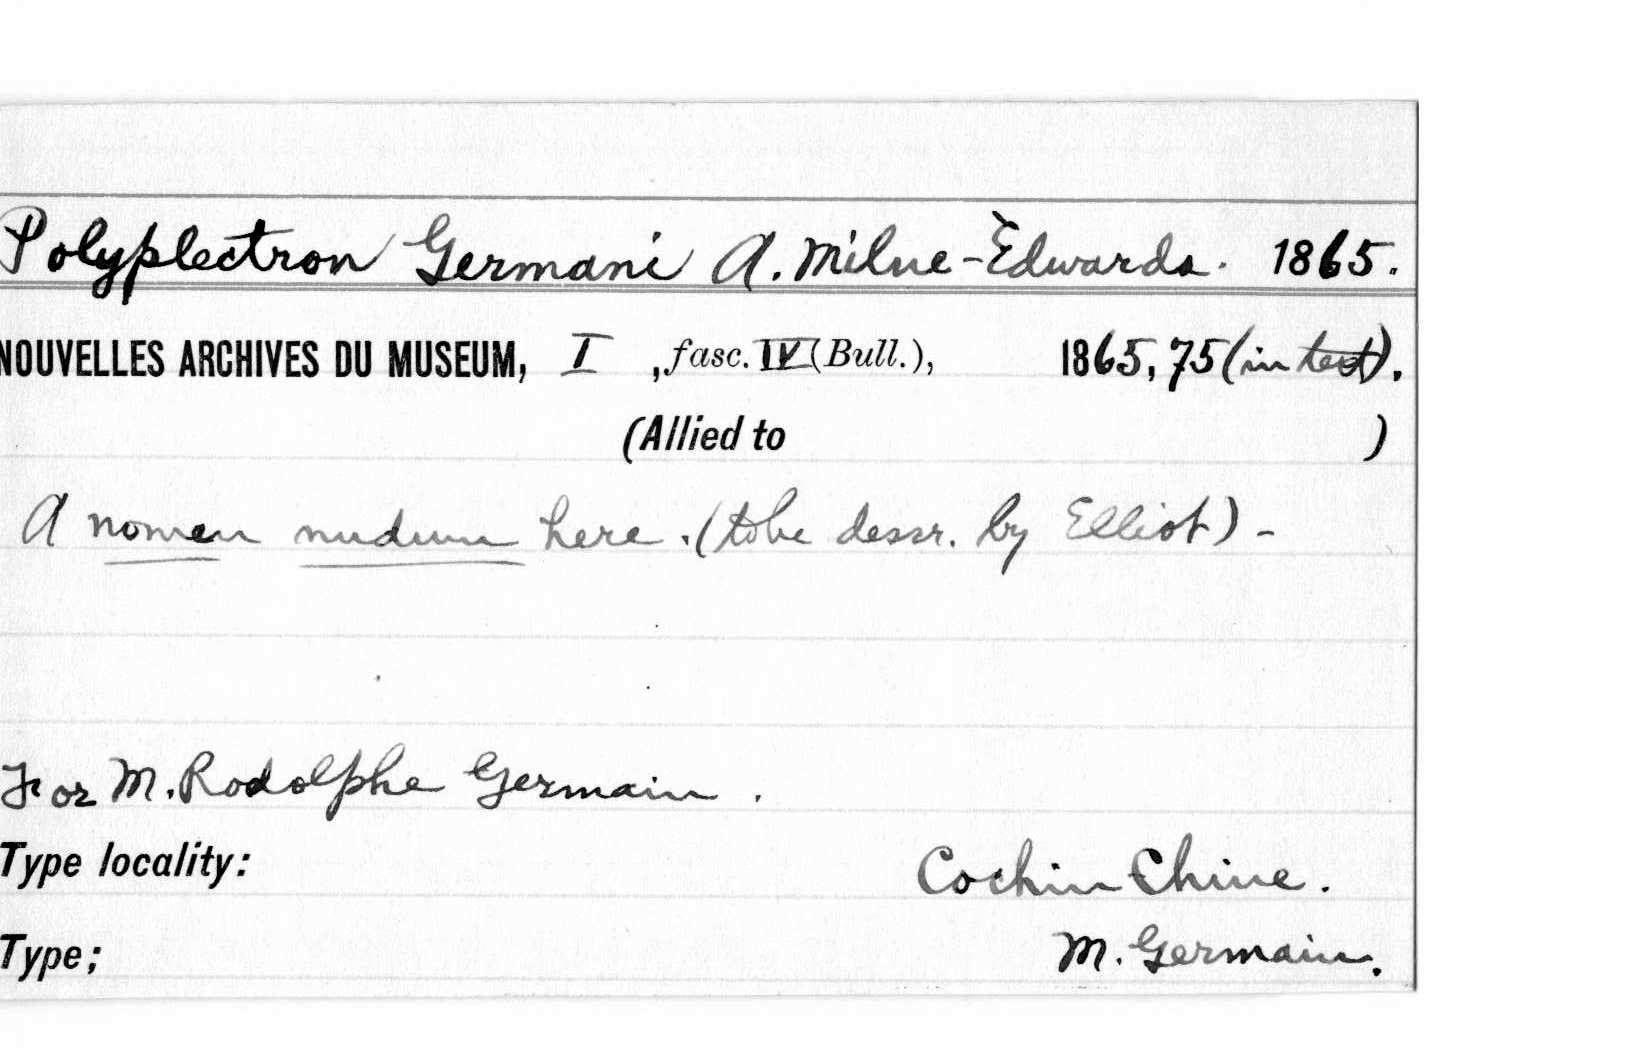 Polyplectron Germani A. Milne-Èdwards. 1865.
NOUVELLES ARCHIVES DU MUSEUM, I , fasc. IV (Bull.), 1865, 75 (in text).
(Allied to )
A nomen nudum here. (to be descr. by Elliot) -
For M. Rodolphe Germain .
Type locality: Cochin Chine.
Type; M. Germain.